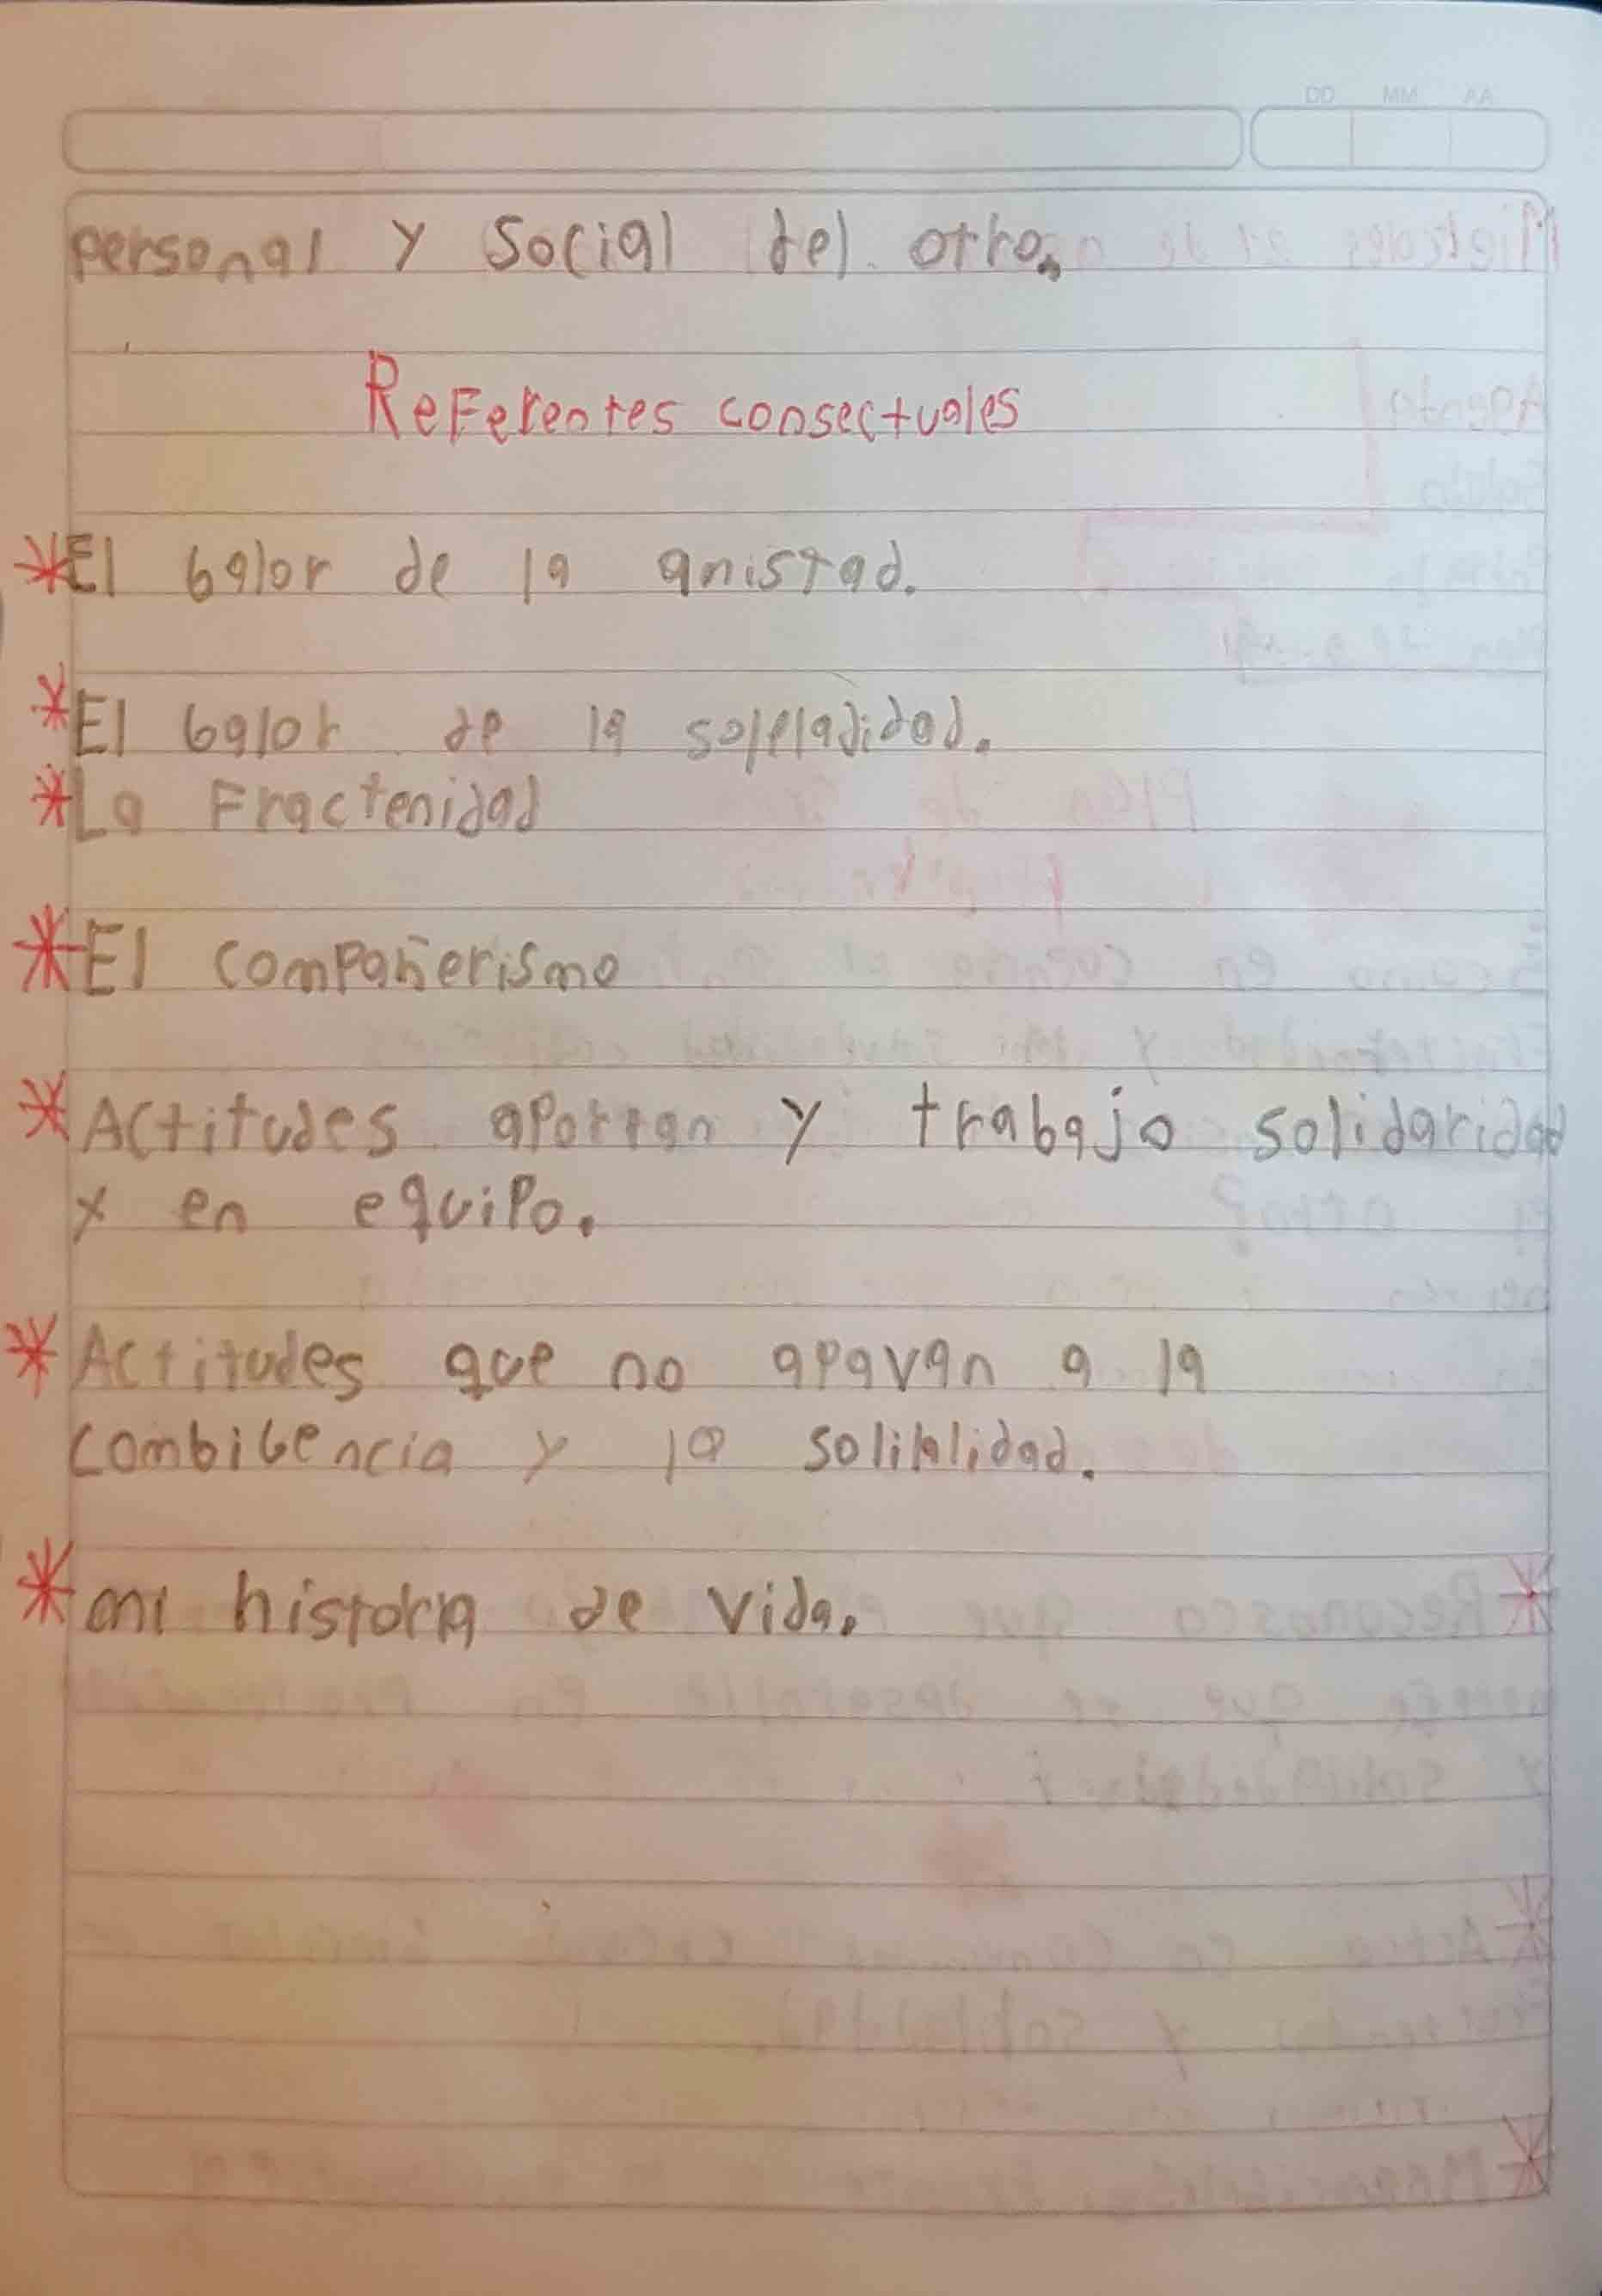 DD MM AA
personal y Social del otro.
Referentes consectuales
*El balor de la anistad.
*El balor de la soleladidad.
*La Fractenidad
*El compañerismo
*Actitudes aportan y trabajo solidaridad
y en equipo.
*Actitudes que no apavan a la
combibencia y la solilalidad.
*mi historia de vida.